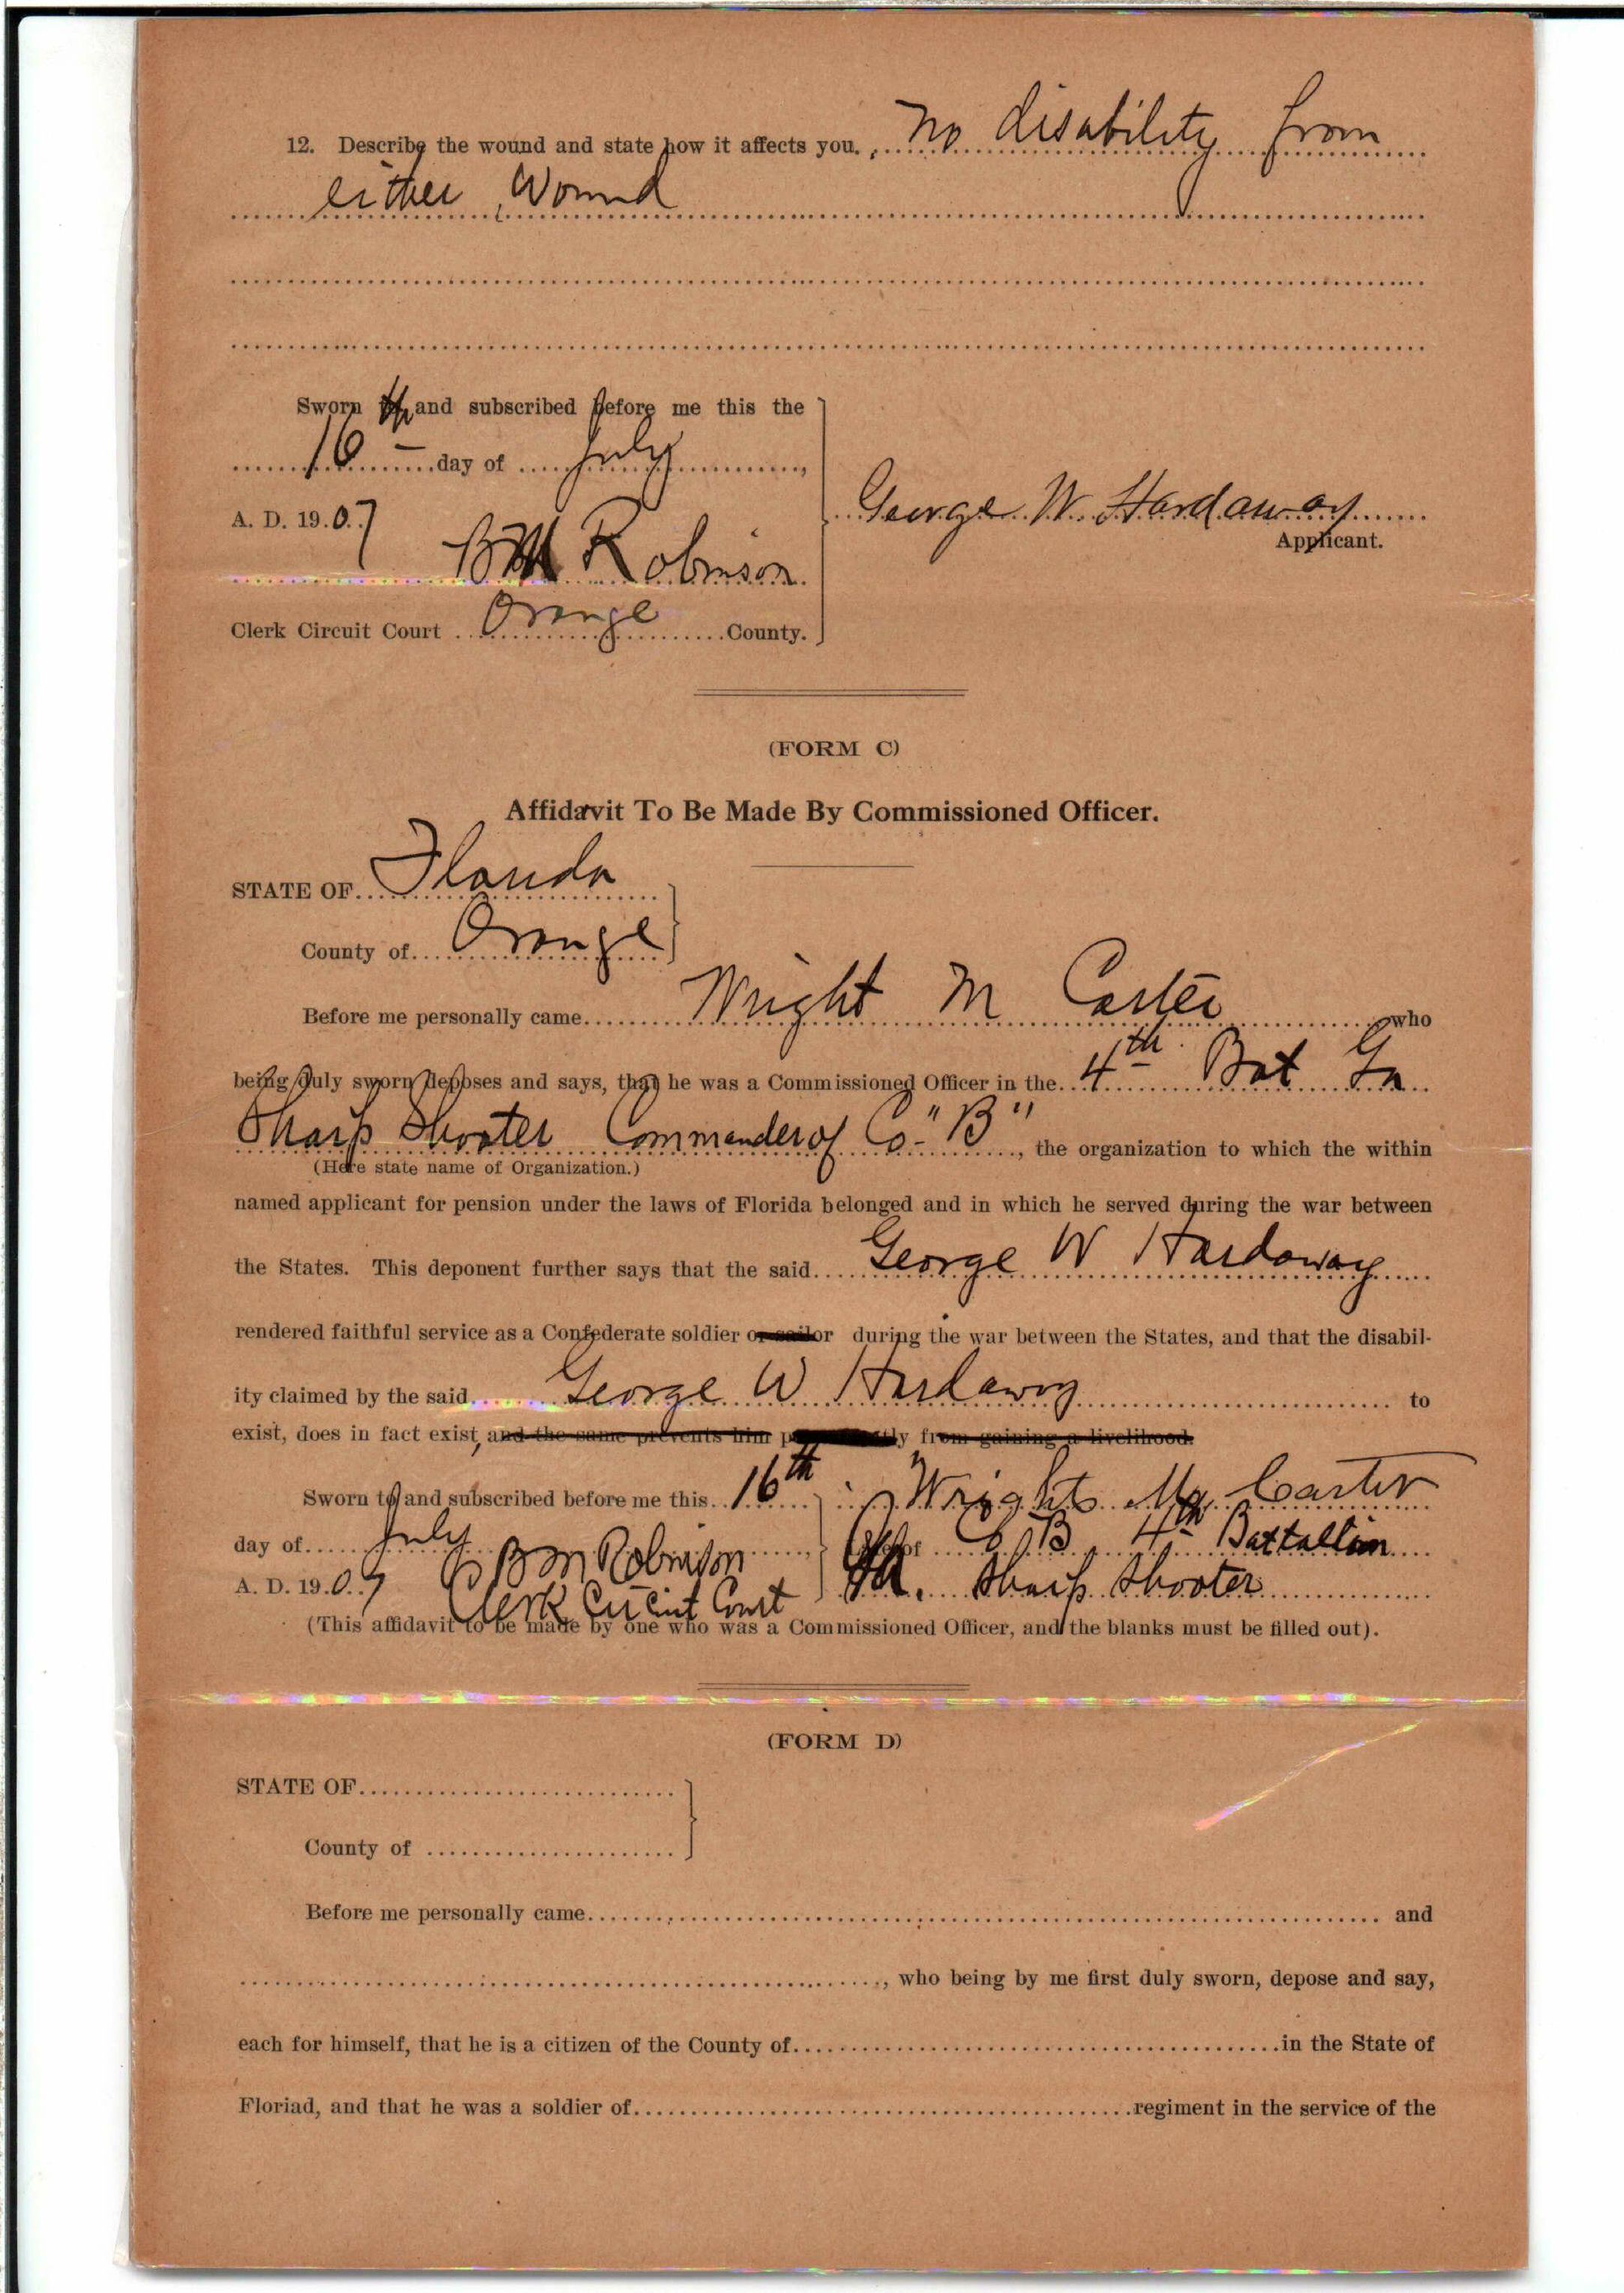 12. Describe the wound and state how it affects you. no disability from
either Wound
Sworn to and subscribed before me this the
16 day of July
A. D. 1907
George W. Hardaway
Applicant.
B M Robinson
Clerk Circuit Court Orange County.
(FORM C)
Affidavit To Be Made By Commissioned Officer.
STATE OF Florida
County of Orange
Before me personally came Wright M Carter who
being duly sworn deposes and says, that he was a Commissioned Officer in the 4th Bat Ga
Sharp Shooter Commander of Co - "B", the organization to which the within
(Here state name of Organization.)
named applicant for pension under the laws of Florida belonged and in which he served during the war between
the States. This deponent further says that the said George W Hardaway
rendered faithful service as a Confederate soldier or sailor during the war between the States, and that the disabil-
ity claimed by the said George W Hardaway to
exist, does in fact exist, and the same prevents him permanently from gaining a livelihood.
Sworn to and subscribed before me this 16th Wright M Carter
day of July B M Robinson of Co B 4th Battallion
A. D. 1907 Clerk Circuit Court Ga. Sharp Shooter
(This affidavit to be made by one who was a Commissioned Officer, and the blanks must be filled out).
(FORM D)
STATE OF
County of
Before me personally came and
, who being by me first duly sworn, depose and say,
each for himself, that he is a citizen of the County of in the State of
Floriad, and that he was a soldier of regiment in the service of the